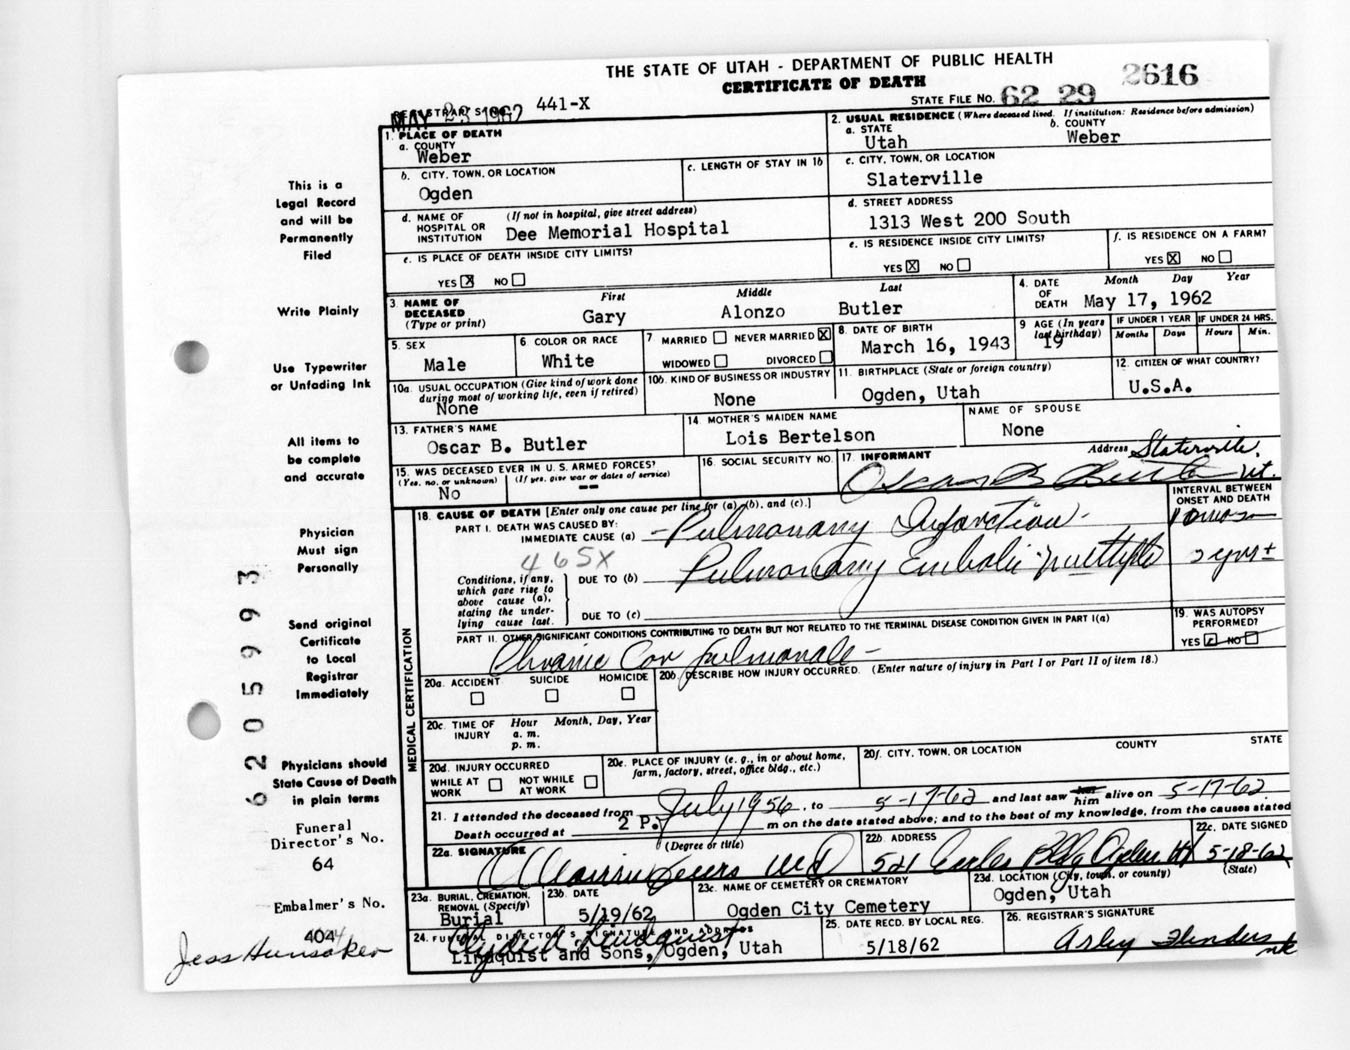 THE STATE OF UTAH - DEPARTMENT OF PUBLIC HEALTH
CERTIFICATE OF DEATH
2616
STATE FILE NO. 62 29
REGISTRAR'S NO. 441-X
MAY 23 1962
1. PLACE OF DEATH
a. COUNTY
Weber
2. USUAL RESIDENCE (Where deceased lived. If institution: Residence before admission)
a. STATE
Utah
b. COUNTY
Weber
b. CITY, TOWN, OR LOCATION
Ogden
c. LENGTH OF STAY IN 1b
c. CITY, TOWN, OR LOCATION
Slaterville
d. NAME OF HOSPITAL OR INSTITUTION
(If not in hospital, give street address)
Dee Memorial Hospital
d. STREET ADDRESS
1313 West 200 South
e. IS PLACE OF DEATH INSIDE CITY LIMITS?
YES ☒ NO ☐
e. IS RESIDENCE INSIDE CITY LIMITS?
YES ☒ NO ☐
f. IS RESIDENCE ON A FARM?
YES ☒ NO ☐
3. NAME OF DECEASED
(Type or print)
First Middle Last
Gary Alonzo Butler
4. DATE OF DEATH
Month Day Year
May 17, 1962
5. SEX
Male
6. COLOR OR RACE
White
7. MARRIED ☐ NEVER MARRIED ☒
WIDOWED ☐ DIVORCED ☐
8. DATE OF BIRTH
March 16, 1943
9. AGE (In years last birthday)
19
IF UNDER 1 YEAR
Months Days
IF UNDER 24 HRS.
Hours Min.
10a. USUAL OCCUPATION (Give kind of work done during most of working life, even if retired)
None
10b. KIND OF BUSINESS OR INDUSTRY
None
11. BIRTHPLACE (State or foreign country)
Ogden, Utah
12. CITIZEN OF WHAT COUNTRY?
U.S.A.
13. FATHER'S NAME
Oscar B. Butler
14. MOTHER'S MAIDEN NAME
Lois Bertelson
NAME OF SPOUSE
None
15. WAS DECEASED EVER IN U.S. ARMED FORCES?
(Yes, no, or unknown) (If yes, give war or dates of service)
No --
16. SOCIAL SECURITY NO.
17. INFORMANT
Oscar B Butler
Address Slaterville, Ut.
18. CAUSE OF DEATH [Enter only one cause per line for (a), (b), and (c).]
INTERVAL BETWEEN ONSET AND DEATH
PART I. DEATH WAS CAUSED BY:
IMMEDIATE CAUSE (a) Pulmonary Infarction
465X
Conditions, if any, which gave rise to above cause (a), stating the underlying cause last.
DUE TO (b) Pulmonary Emboli - multiple 2 yrs ±
DUE TO (c)
PART II. OTHER SIGNIFICANT CONDITIONS CONTRIBUTING TO DEATH BUT NOT RELATED TO THE TERMINAL DISEASE CONDITION GIVEN IN PART I(a)
Chronic Cor pulmonale -
19. WAS AUTOPSY PERFORMED?
YES ☑ NO ☐
20a. ACCIDENT ☐ SUICIDE ☐ HOMICIDE ☐
20b. DESCRIBE HOW INJURY OCCURRED. (Enter nature of injury in Part I or Part II of item 18.)
20c. TIME OF INJURY
Hour Month, Day, Year
a. m.
p. m.
20d. INJURY OCCURRED
WHILE AT WORK ☐ NOT WHILE AT WORK ☐
20e. PLACE OF INJURY (e. g., in or about home, farm, factory, street, office bldg., etc.)
20f. CITY, TOWN, OR LOCATION COUNTY STATE
21. I attended the deceased from July 1956, to 5-17-62 and last saw him alive on 5-17-62
Death occurred at 2 P. m on the date stated above; and to the best of my knowledge, from the causes stated
22a. SIGNATURE (Degree or title)
MD
22b. ADDRESS
521 Eccles Bldg Ogden Ut
22c. DATE SIGNED
5-18-62
23a. BURIAL, CREMATION, REMOVAL (Specify)
Burial
23b. DATE
5/19/62
23c. NAME OF CEMETERY OR CREMATORY
Ogden City Cemetery
23d. LOCATION (City, town, or county) (State)
Ogden, Utah
24. FUNERAL DIRECTOR'S SIGNATURE AND ADDRESS
Clyde A Lindquist
Lindquist and Sons, Ogden, Utah
25. DATE RECD. BY LOCAL REG.
5/18/62
26. REGISTRAR'S SIGNATURE
Arley Flinders
MEDICAL CERTIFICATION
This is a
Legal Record
and will be
Permanently
Filed
Write Plainly
Use Typewriter
or Unfading Ink
All items to
be complete
and accurate
Physician
Must sign
Personally
Send original
Certificate
to Local
Registrar
Immediately
Physicians should
State Cause of Death
in plain terms
Funeral
Director's No.
64
Embalmer's No.
404
Jess Hunsaker
6 2 0 5 9 9 3